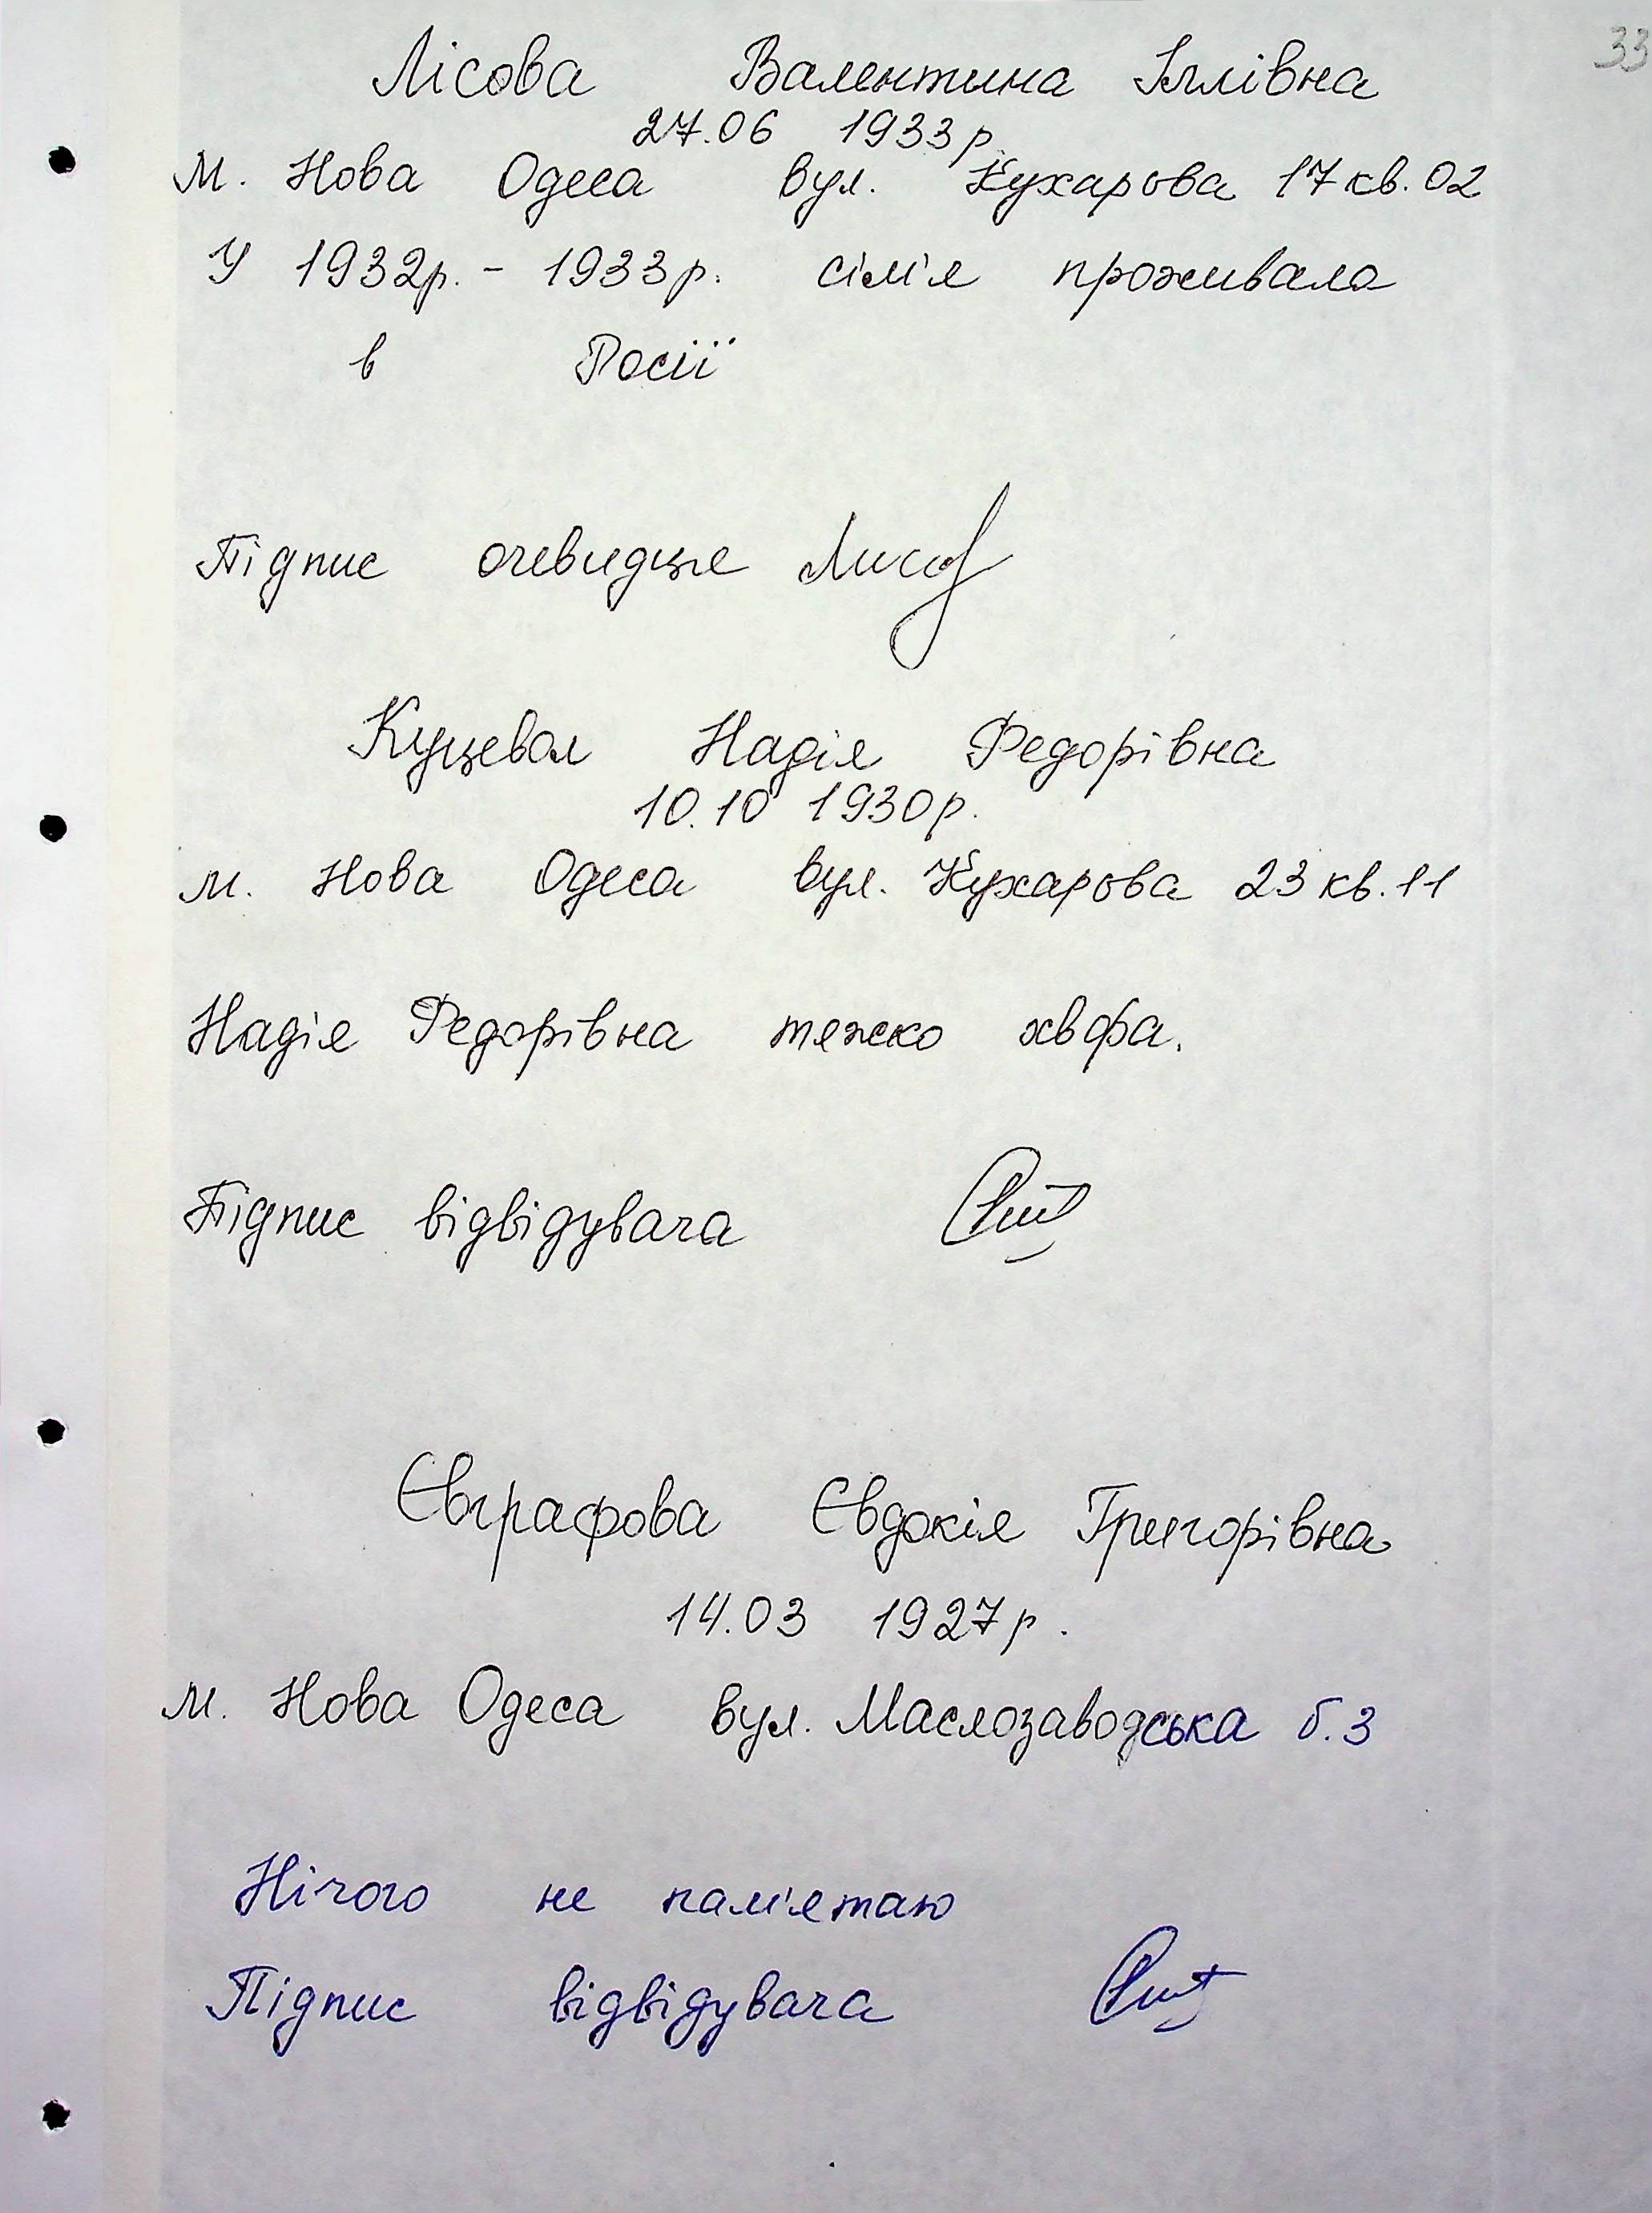 33
Лісова Валентина Іллівна
27.06 1933 р.
м. Нова Одеса вул. Кухарова 17 кв. 02
У 1932р. - 1933р. сім'я проживала
в Росії
Підпис очевидця
Куцевол Надія Федорівна
10.10 1930р.
м. Нова Одеса вул. Кухарова 23 кв. 11
Надія Федорівна тяжко хвора.
Підпис відвідувача
Євграфова Євдокія Григорівна
14.03 1927р.
м. Нова Одеса вул. Маслозаводська б. 3
Нічого не пам'ятаю
Підпис відвідувача